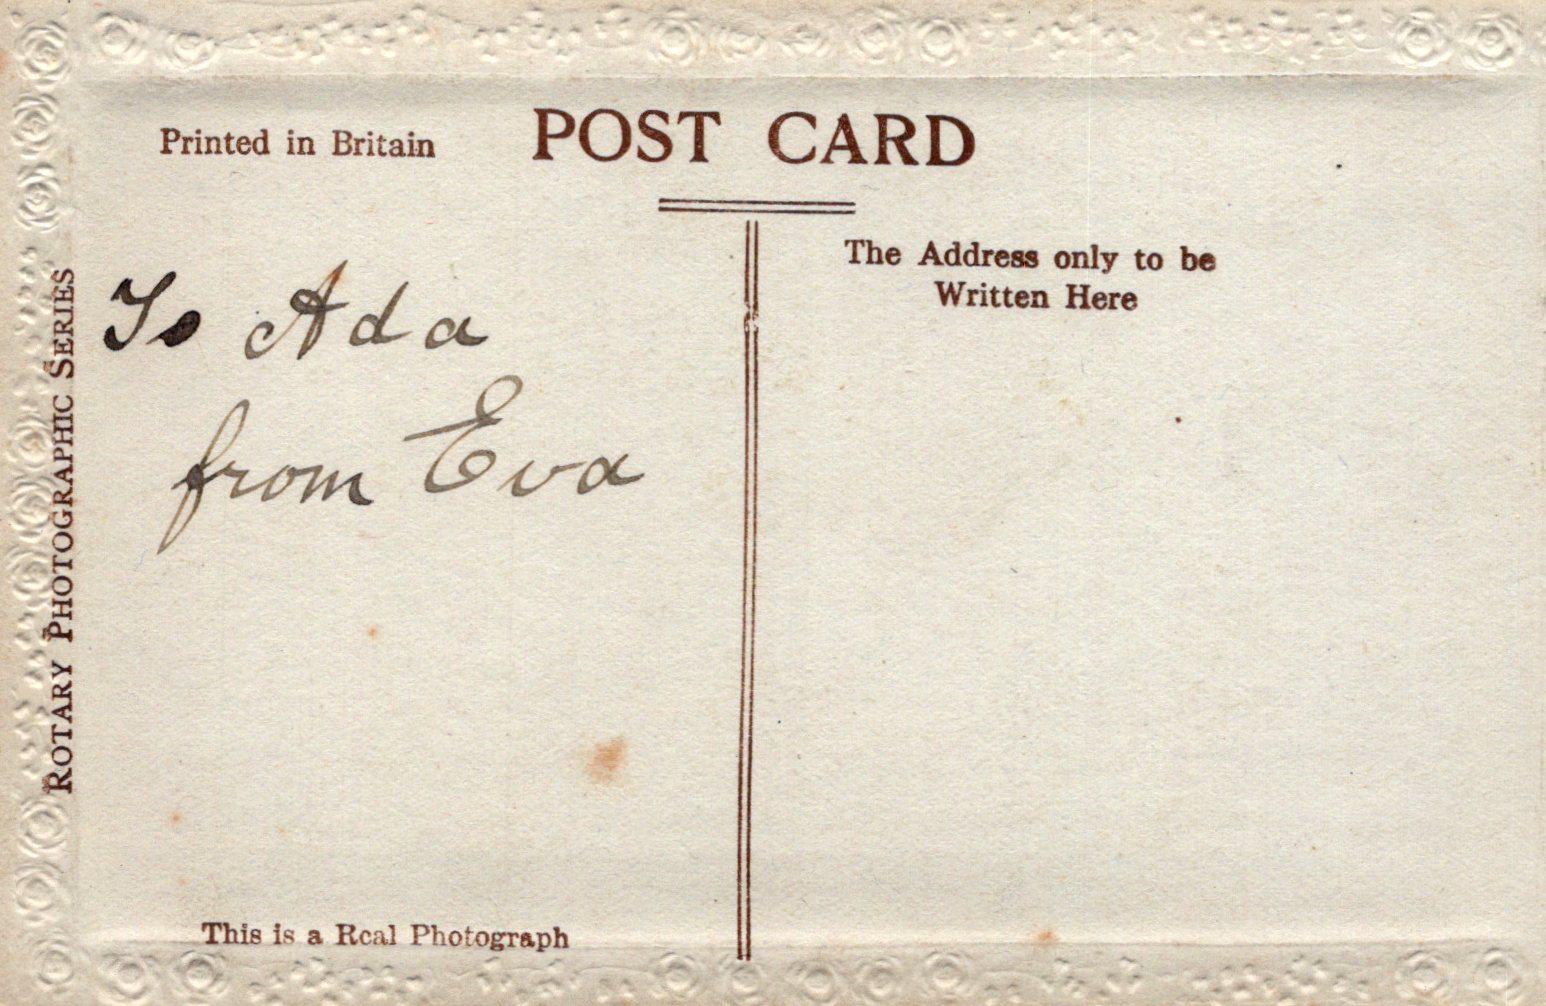 Printed in Britain
POST CARD
The Address only to be
Written Here
To Ada
from Eva
ROTARY PHOTOGRAPHIC SERIES
This is a Real Photograph